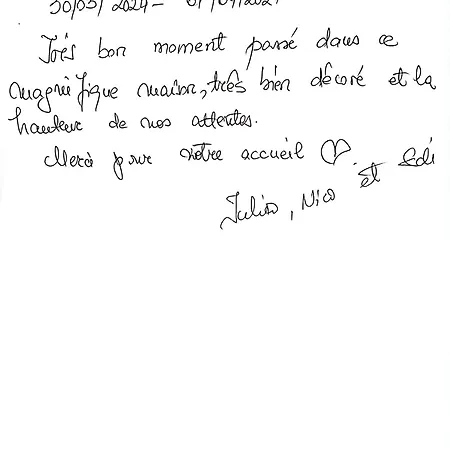 30/03/2024 - 01/04/2024
Très bon moment passé dans ce
magnifique maison, très bien décoré et la
hauteur de nos attentes.
Merci pour votre accueil ♡.
Julien, Nico et